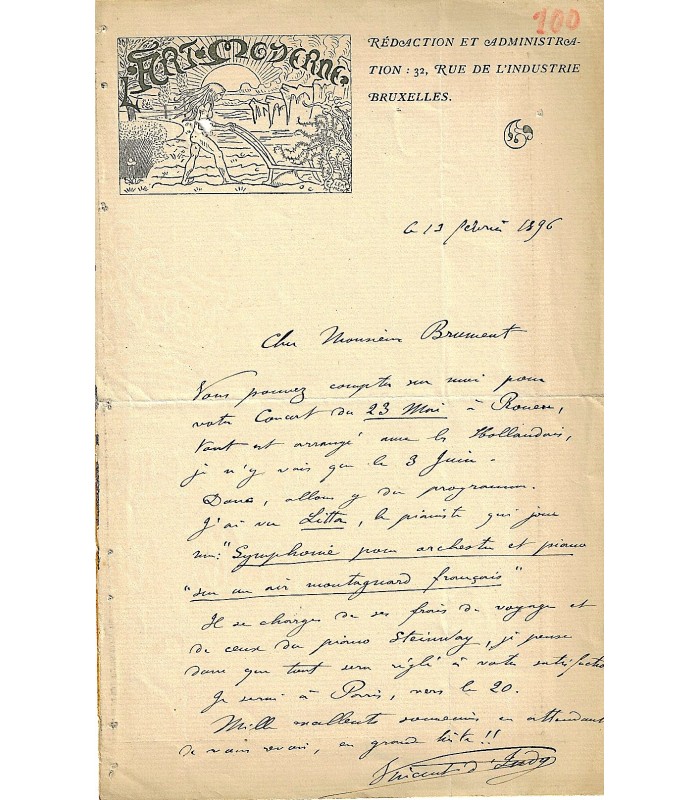 100
L'ART MODERNE
RÉDACTION ET ADMINISTRA-
TION : 32, RUE DE L'INDUSTRIE
BRUXELLES.
le 13 février 1896
Cher Monsieur Brument
Vous pouvez compter sur moi pour
votre Concert du 23 Mai à Rouen,
tout est arrangé avec les Hollandais,
je n'y vais que le 3 Juin.
Donc, allons y du programme.
J'ai vu Litta, le pianiste qui joue
ma: "Symphonie pour orchestre et piano
"sur un air montagnard français"
Il se charge de ses frais de voyage et
de ceux du piano Steinway, je pense
donc que tout sera réglé à votre satisfactio
Je serai à Paris, vers le 20.
Mille excellents souvenirs en attendant
de vous revoir, en grande hâte!!
Vincent d'Indy